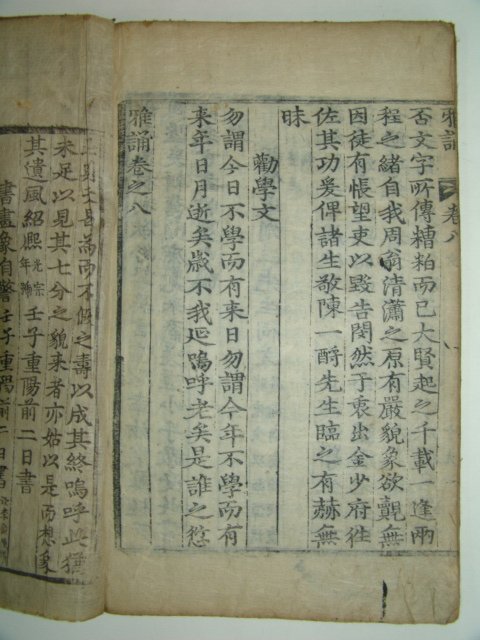 雅誦 卷八
否文字所傳糟粕而已大賢起之千載一逢兩
程之緒自我周翁清瀟之原有嚴貌象欲覿無
因徒有悵望吏以毀告閔然于衷出金少府往
佐其功爰俾諸生敬陳一酹先生臨之有赫無
昧
勸學文
勿謂今日不學而有來日勿謂今年不學而有
来年日月逝矣歲不我延嗚呼老矣是誰之愆
雅誦卷之八
而不假之壽以成其終嗚呼此猶
未足以見其七分之貌来者亦姑以是而想象
其遺風紹熙光宗年號壬子重陽前二日書
書畫象自警